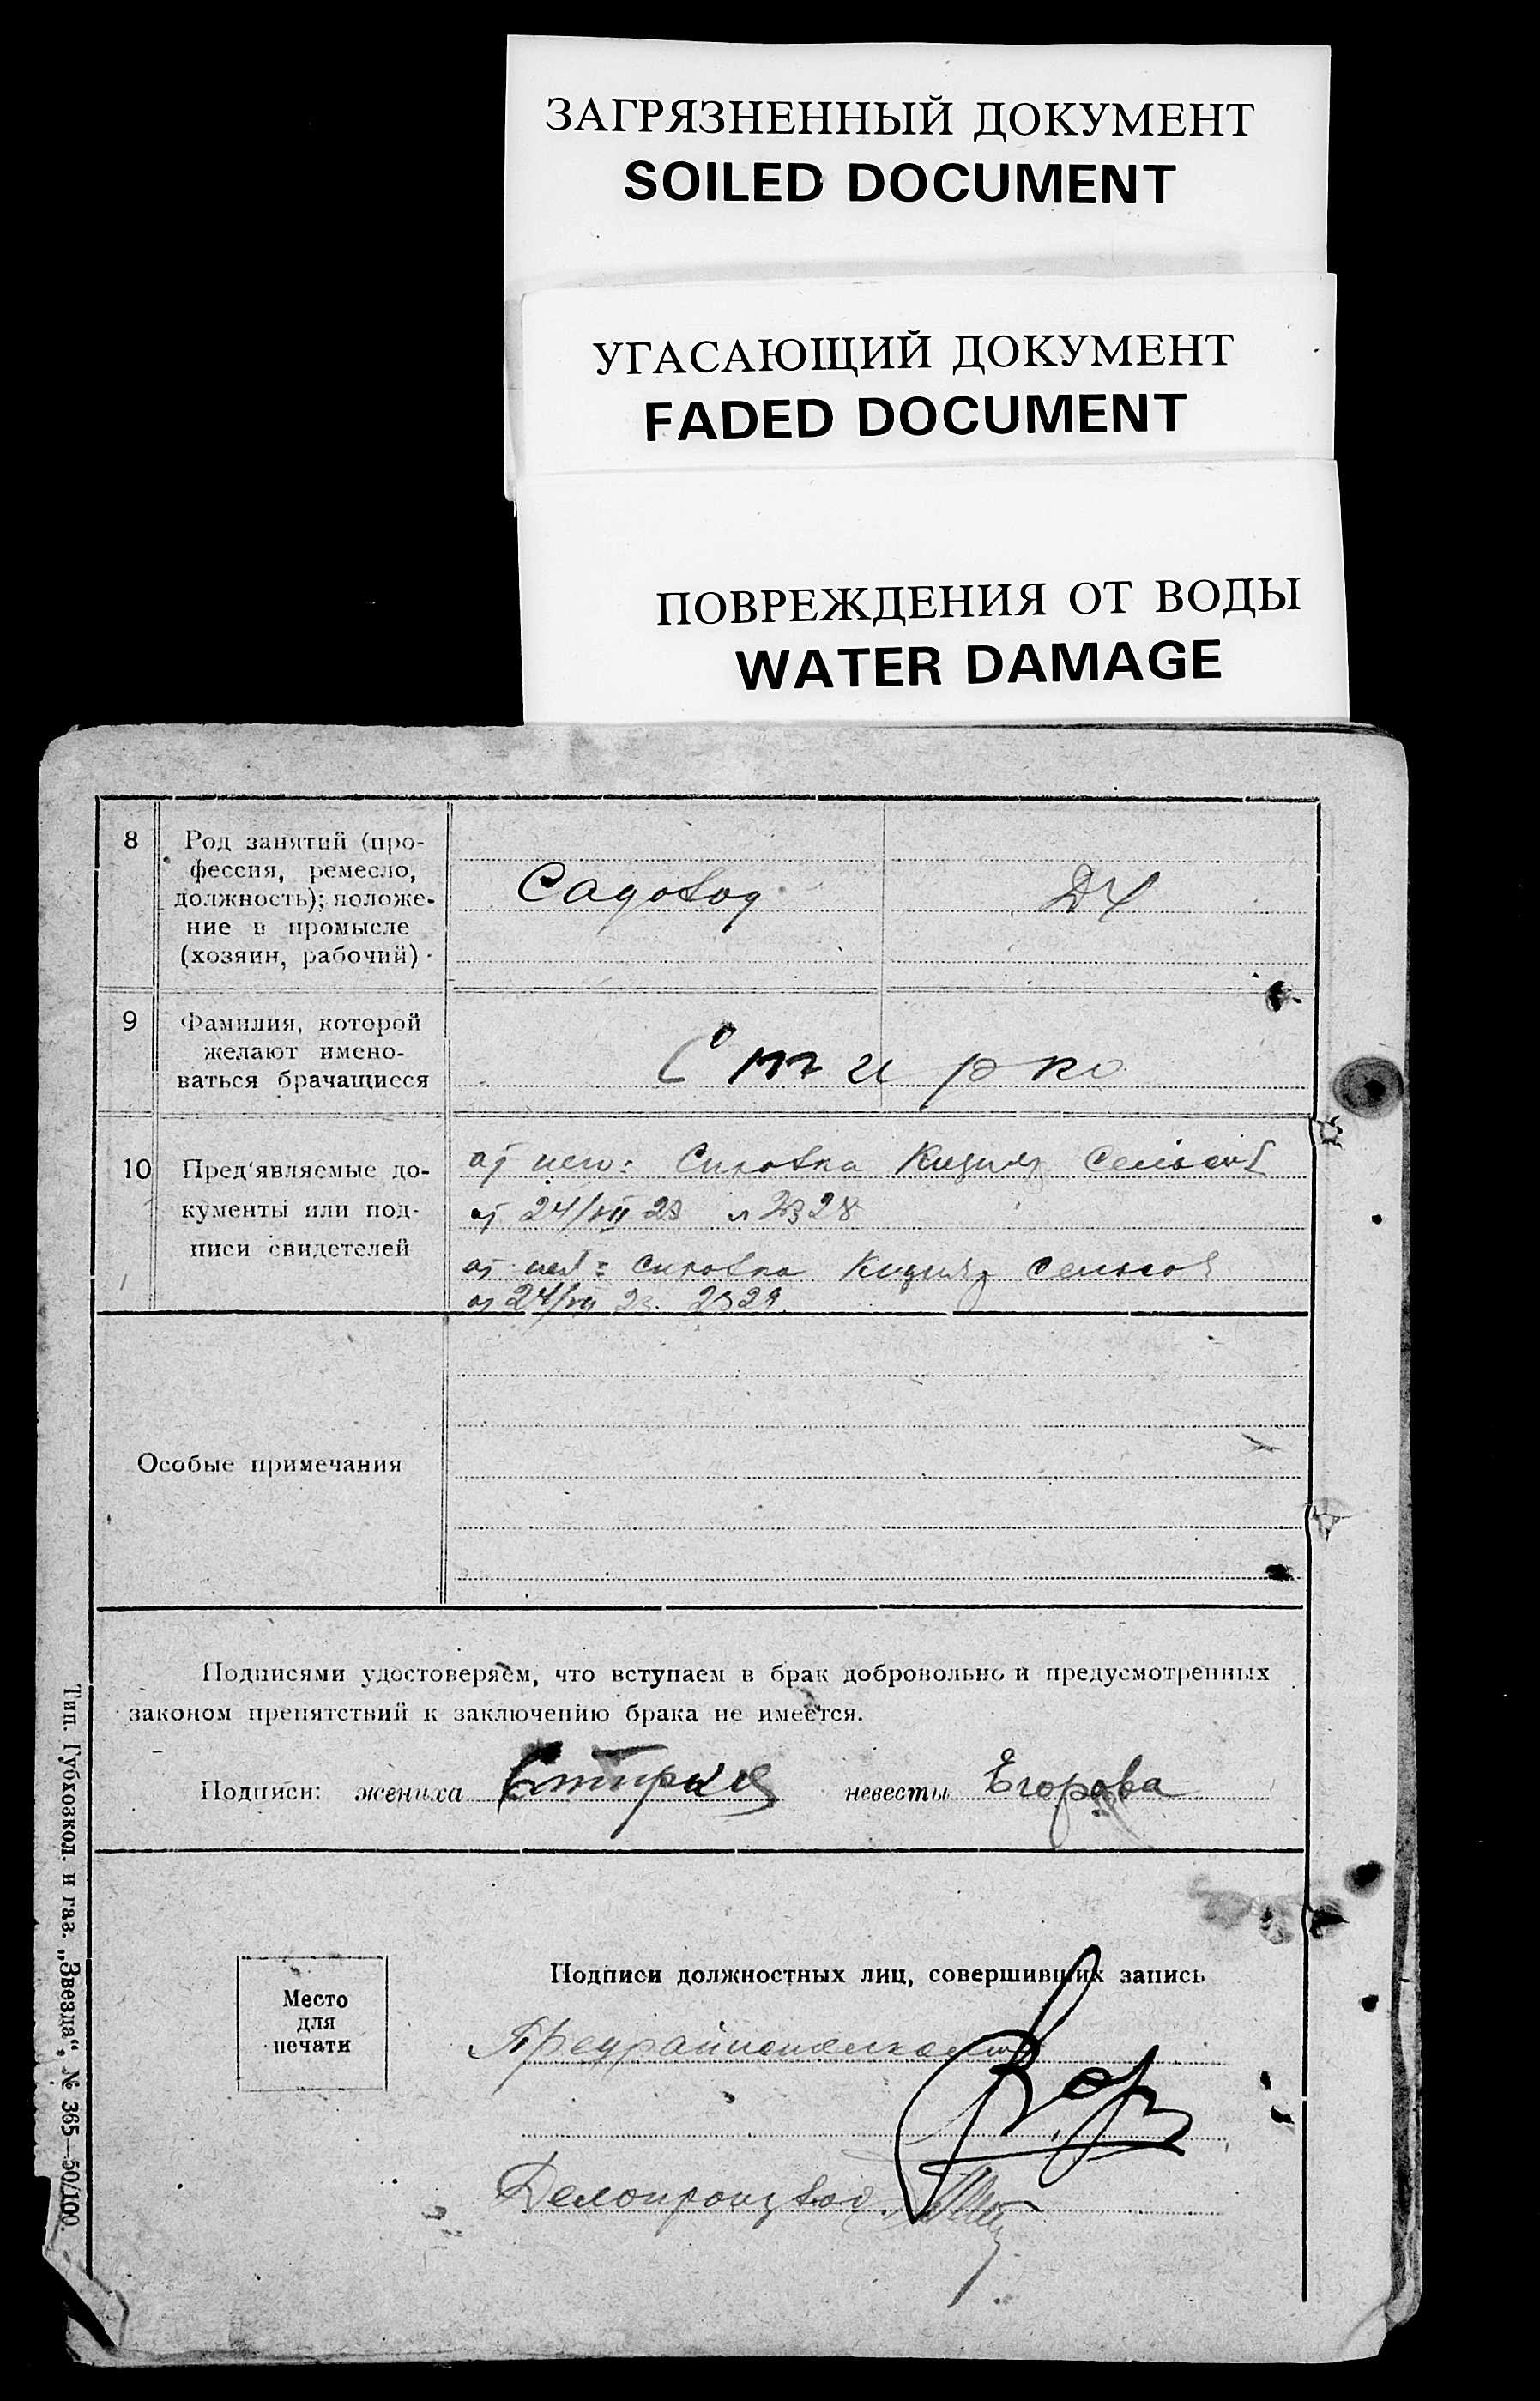 ЗАГРЯЗНЕННЫЙ ДОКУМЕНТ
SOILED DOCUMENT
УГАСАЮЩИЙ ДОКУМЕНТ
FADED DOCUMENT
ПОВРЕЖДЕНИЯ ОТ ВОДЫ
WATER DAMAGE
8
Род занятий (про-
фессия, ремесло,
должность); положе-
ние в промысле
(хозяин, рабочий)
Садовод
ДХ
9
Фамилия, которой
желают имено-
ваться брачащиеся
Стирко
10
Пред'являемые до-
кументы или под-
писи свидетелей
от него: Справка Кизияр Сельсов
от 24/VII 23 № 2328
от нея: Справка Кизияр Сельсов
от 24/VII 23. 2329
Особые примечания
Подписями удостоверяем, что вступаем в брак добровольно и предусмотренных
законом препятствий к заключению брака не имеется.
Подписи: жениха Стирко невесты Егорова
Место
для
печати
Подписи должностных лиц, совершивших запись
Делопроизвод.
Тип. Губхозкол. и газ. „Звезда“, № 365—50/100.